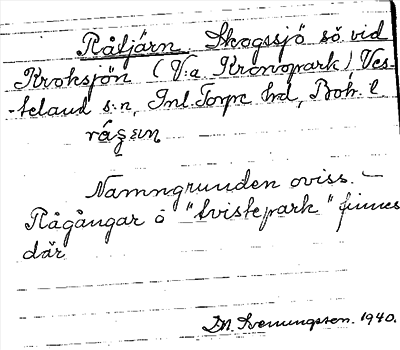 Råtjärn. Skogssjö sö vid
Kroksjön (V:a Kronopark) Ves-
-teland s:n, Inl. Torpe hd, Boh. l
Namngrunden oviss. —
Rågångar ö "tvistepark" finnes
där
1940.